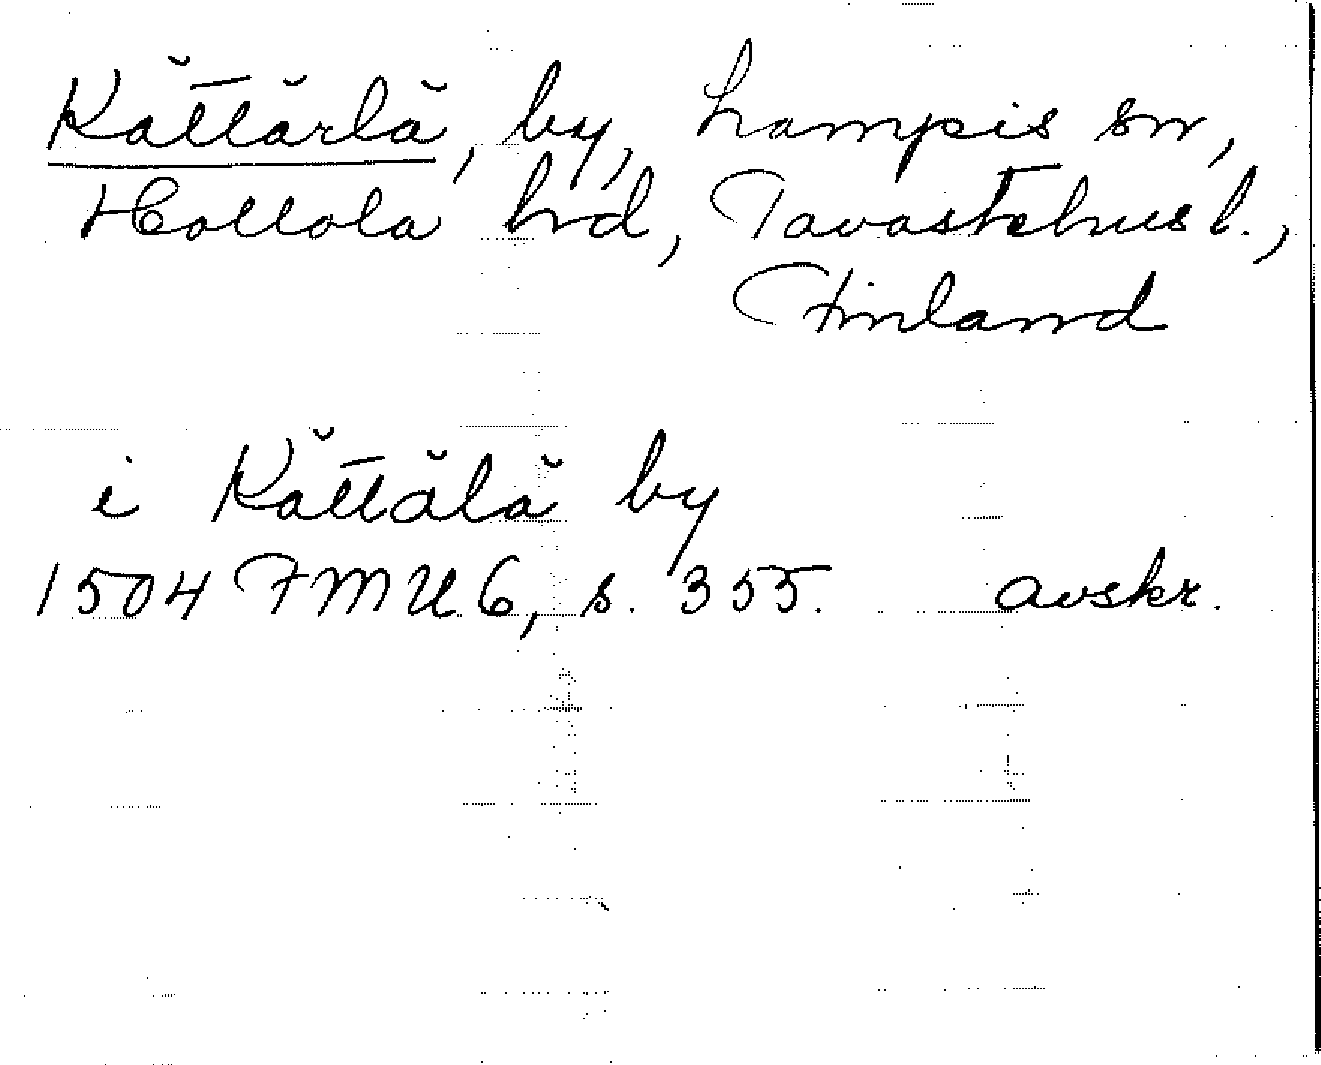 Kättärlä, by, Lampis sn,
Hollola hrd, Tavastehus l.,
Finland
i Kättälä by
1504 FMU 6, s. 355. avskr.